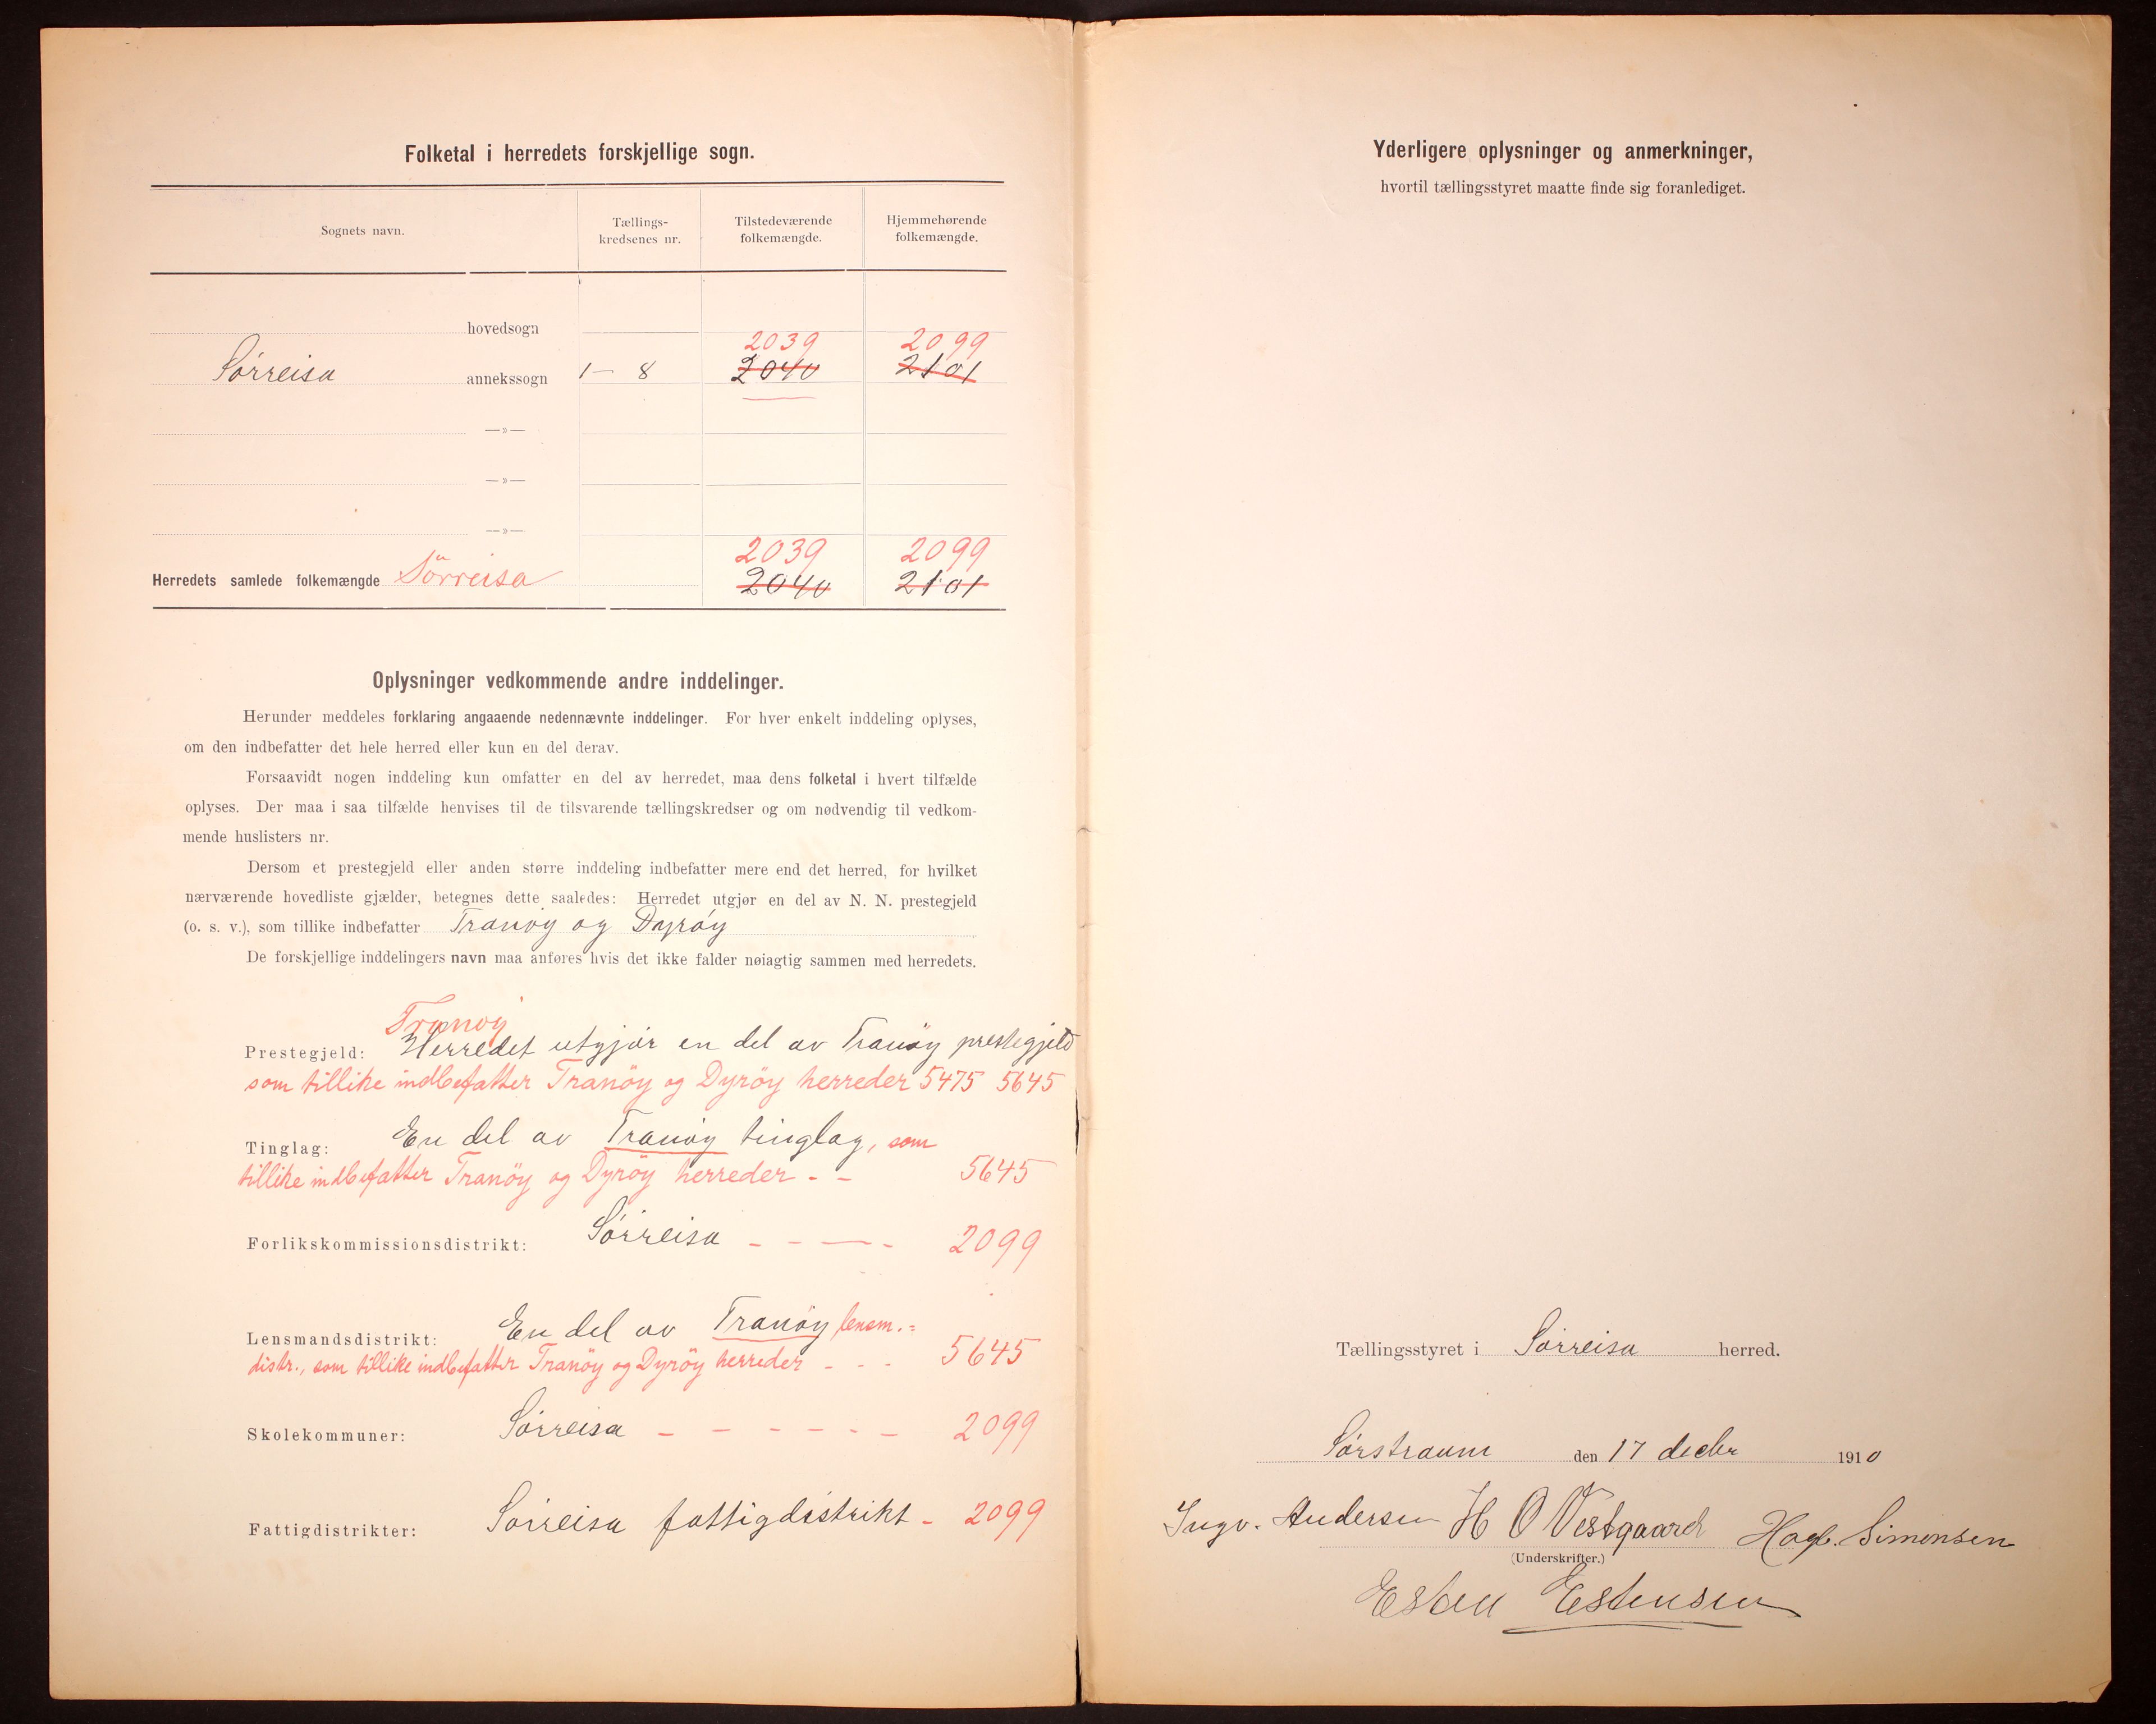 Folketal i herredets forskjellige sogn.
Sognets navn.
Tællings-
kredsenes nr.
Tilstedeværende
folkemængde.
Hjemmehørende
folkemængde.
hovedsogn
2039 2099
Sørreisa annekssogn 1 - 8 2040 2101
—»—
—»—
—»—
2039 2099
Herredets samlede folkemængde Sörreisa 2040 2101
Oplysninger vedkommende andre inddelinger.
Herunder meddeles forklaring angaaende nedennævnte inddelinger. For hver enkelt inddeling oplyses,
om den indbefatter det hele herred eller kun en del derav.
Forsaavidt nogen inddeling kun omfatter en del av herredet, maa dens folketal i hvert tilfælde
oplyses. Der maa i saa tilfælde henvises til de tilsvarende tællingskredser og om nødvendig til vedkom-
mende huslisters nr.
Dersom et prestegjeld eller anden større inddeling indbefatter mere end det herred, for hvilket
nærværende hovedliste gjælder, betegnes dette saaledes: Herredet utgjør en del av N. N. prestegjeld
(o. s. v.), som tillike indbefatter Tranøy og Dyrøy
De forskjellige inddelingers navn maa anføres hvis det ikke falder nøiagtig sammen med herredets.
Tranøy
Prestegjeld: Herredet utgjør en del av Tranøy prestegjeld
som tillike indbefatter Tranöy og Dyröy herreder 5475 5645
Tinglag: En del av Tranøy tinglag, som
tillike indbefatter Tranöy og Dyröy herreder - - 5645
Forlikskommissionsdistrikt: Sørreisa - - — - 2099
Lensmandsdistrikt: En del av Tranøy lensm.=
distr., som tillike indbefatter Tranöy og Dyröy herreder - - - 5645
Skolekommuner: Sørreisa - - - - - - 2099
Fattigdistrikter: Sørreisa fattigdistrikt - 2099
Yderligere oplysninger og anmerkninger,
hvortil tællingsstyret maatte finde sig foranlediget.
Tællingsstyret i Sørreisa herred.
Sørstraum den 17 decbr 1910
Ingv. Andersen H O Vestgaard Hagb. Simonsen
(Underskrifter.)
Esten Estensen